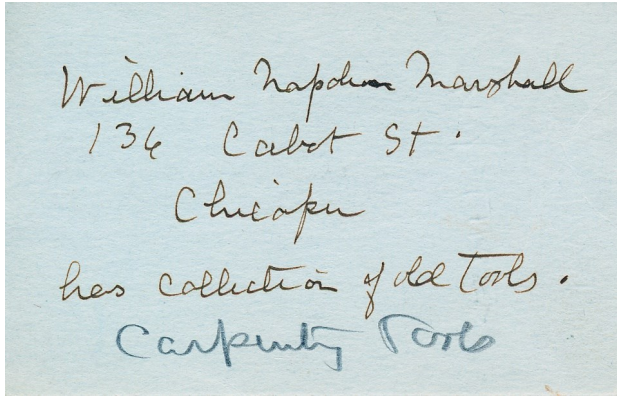 William Napoleon Marshall
136 Cabot St.
Chicopee
has collection of old Tools.
Carpentry Tools